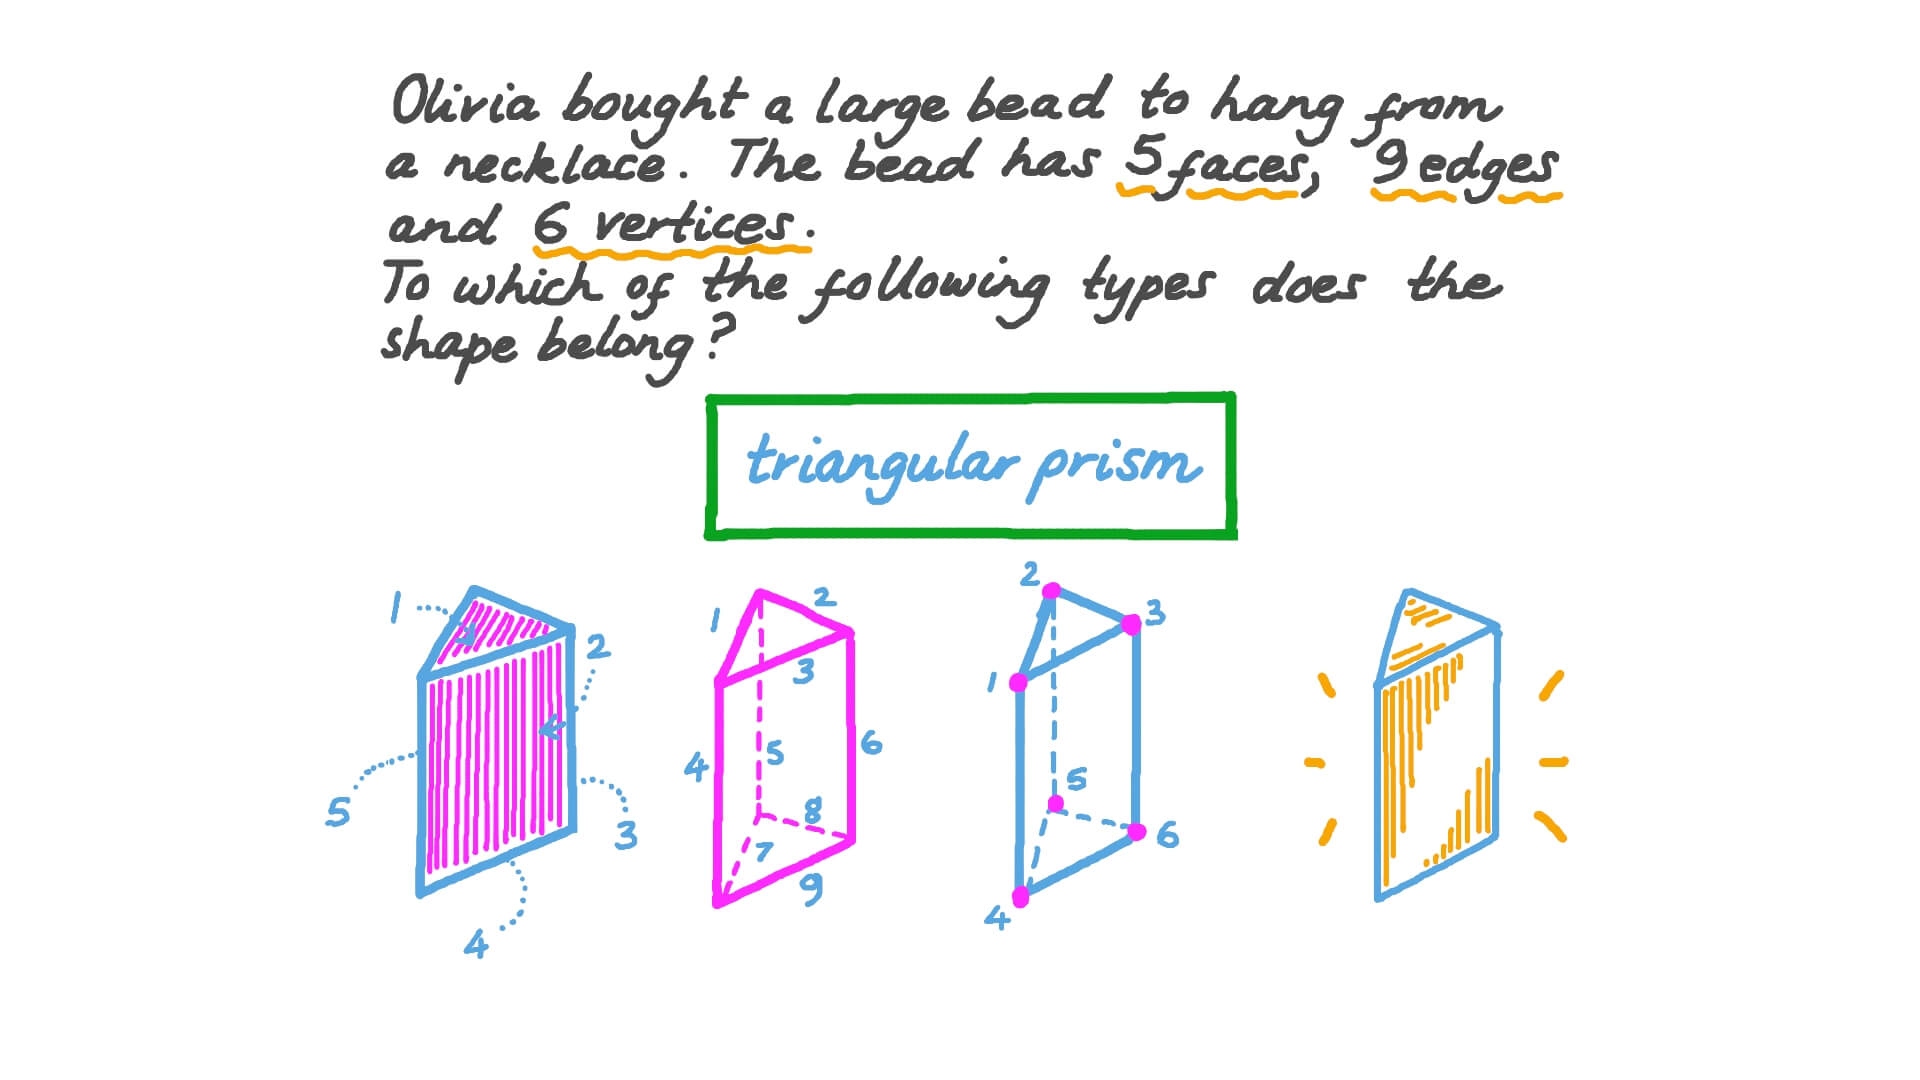 Olivia bought a large bead to hang from
a necklace. The bead has 5 faces, 9 edges
and 6 vertices.
To which of the following types does the
shape belong?
triangular prism
1
2
3
4
5
1
2
3
4
5
6
7
8
9
1
2
3
4
5
6